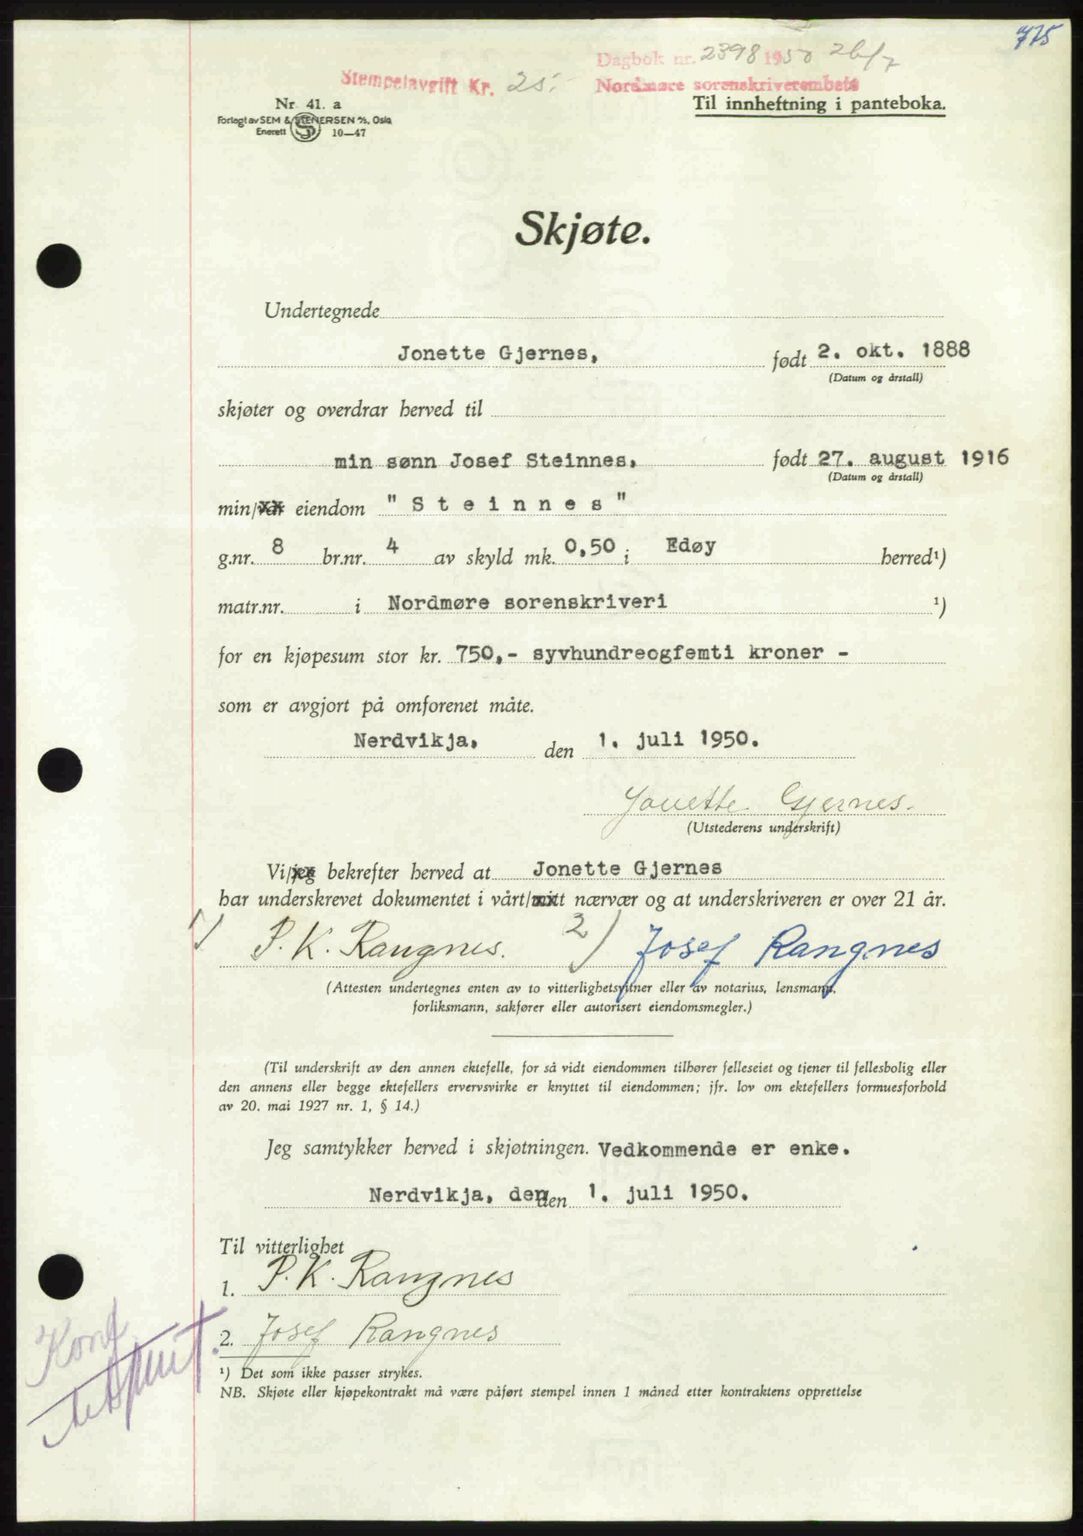 775
Dagbok nr. 2398 1950 26/7
Stempelavgift Kr. 25.-
Nordmøre sorenskriverembete
Nr. 41. a
Til innheftning i panteboka.
Forlagt av SEM & STENERSEN A/S, Oslo
Enerett S 10—47
Skjøte.
Undertegnede
Jonette Gjernes, født 2. okt. 1888
(Datum og årstall)
skjøter og overdrar herved til
min sønn Josef Steinnes, født 27. august 1916
(Datum og årstall)
min/vår eiendom "Steinnes"
g.nr. 8 br.nr. 4 av skyld mk. 0,50 i Edøy herred¹)
matr.nr. i Nordmøre sorenskriveri ¹)
for en kjøpesum stor kr. 750,- syvhundreogfemti kroner -
som er avgjort på omforenet måte.
Nerdvikja, den 1. juli 1950.
Jonette Gjernes.
(Utstederens underskrift)
Vi/jeg bekrefter herved at Jonette Gjernes
har underskrevet dokumentet i vårt/mitt nærvær og at underskriveren er over 21 år.
1) P. K. Rangnes. 2) Josef Rangnes
(Attesten undertegnes enten av to vitterlighetsvitner eller av notarius, lensmann,
forliksmann, sakfører eller autorisert eiendomsmegler.)
(Til underskrift av den annen ektefelle, for så vidt eiendommen tilhører felleseiet og tjener til fellesbolig eller
den annens eller begge ektefellers ervervsvirke er knyttet til eiendommen; jfr. lov om ektefellers formuesforhold
av 20. mai 1927 nr. 1, § 14.)
Jeg samtykker herved i skjøtningen. Vedkommende er enke.
Nerdvikja, den den 1. juli 1950.
Til vitterlighet
1. P. K. Rangnes
2. Josef Rangnes
Konf
¹) Det som ikke passer strykes.
NB. Skjøte eller kjøpekontrakt må være påført stempel innen 1 måned etter kontraktens opprettelse